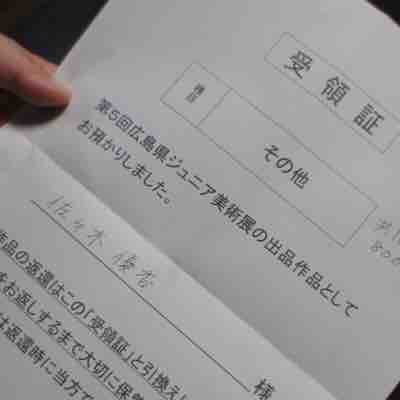 受領証
種目 その他
第5回広島県ジュニア美術展の出品作品として
お預かりしました。
佐々木 優杏 様
作品の返還はこの「受領証」と引換え
をお返しするまで大切に保
は返還時に当方で